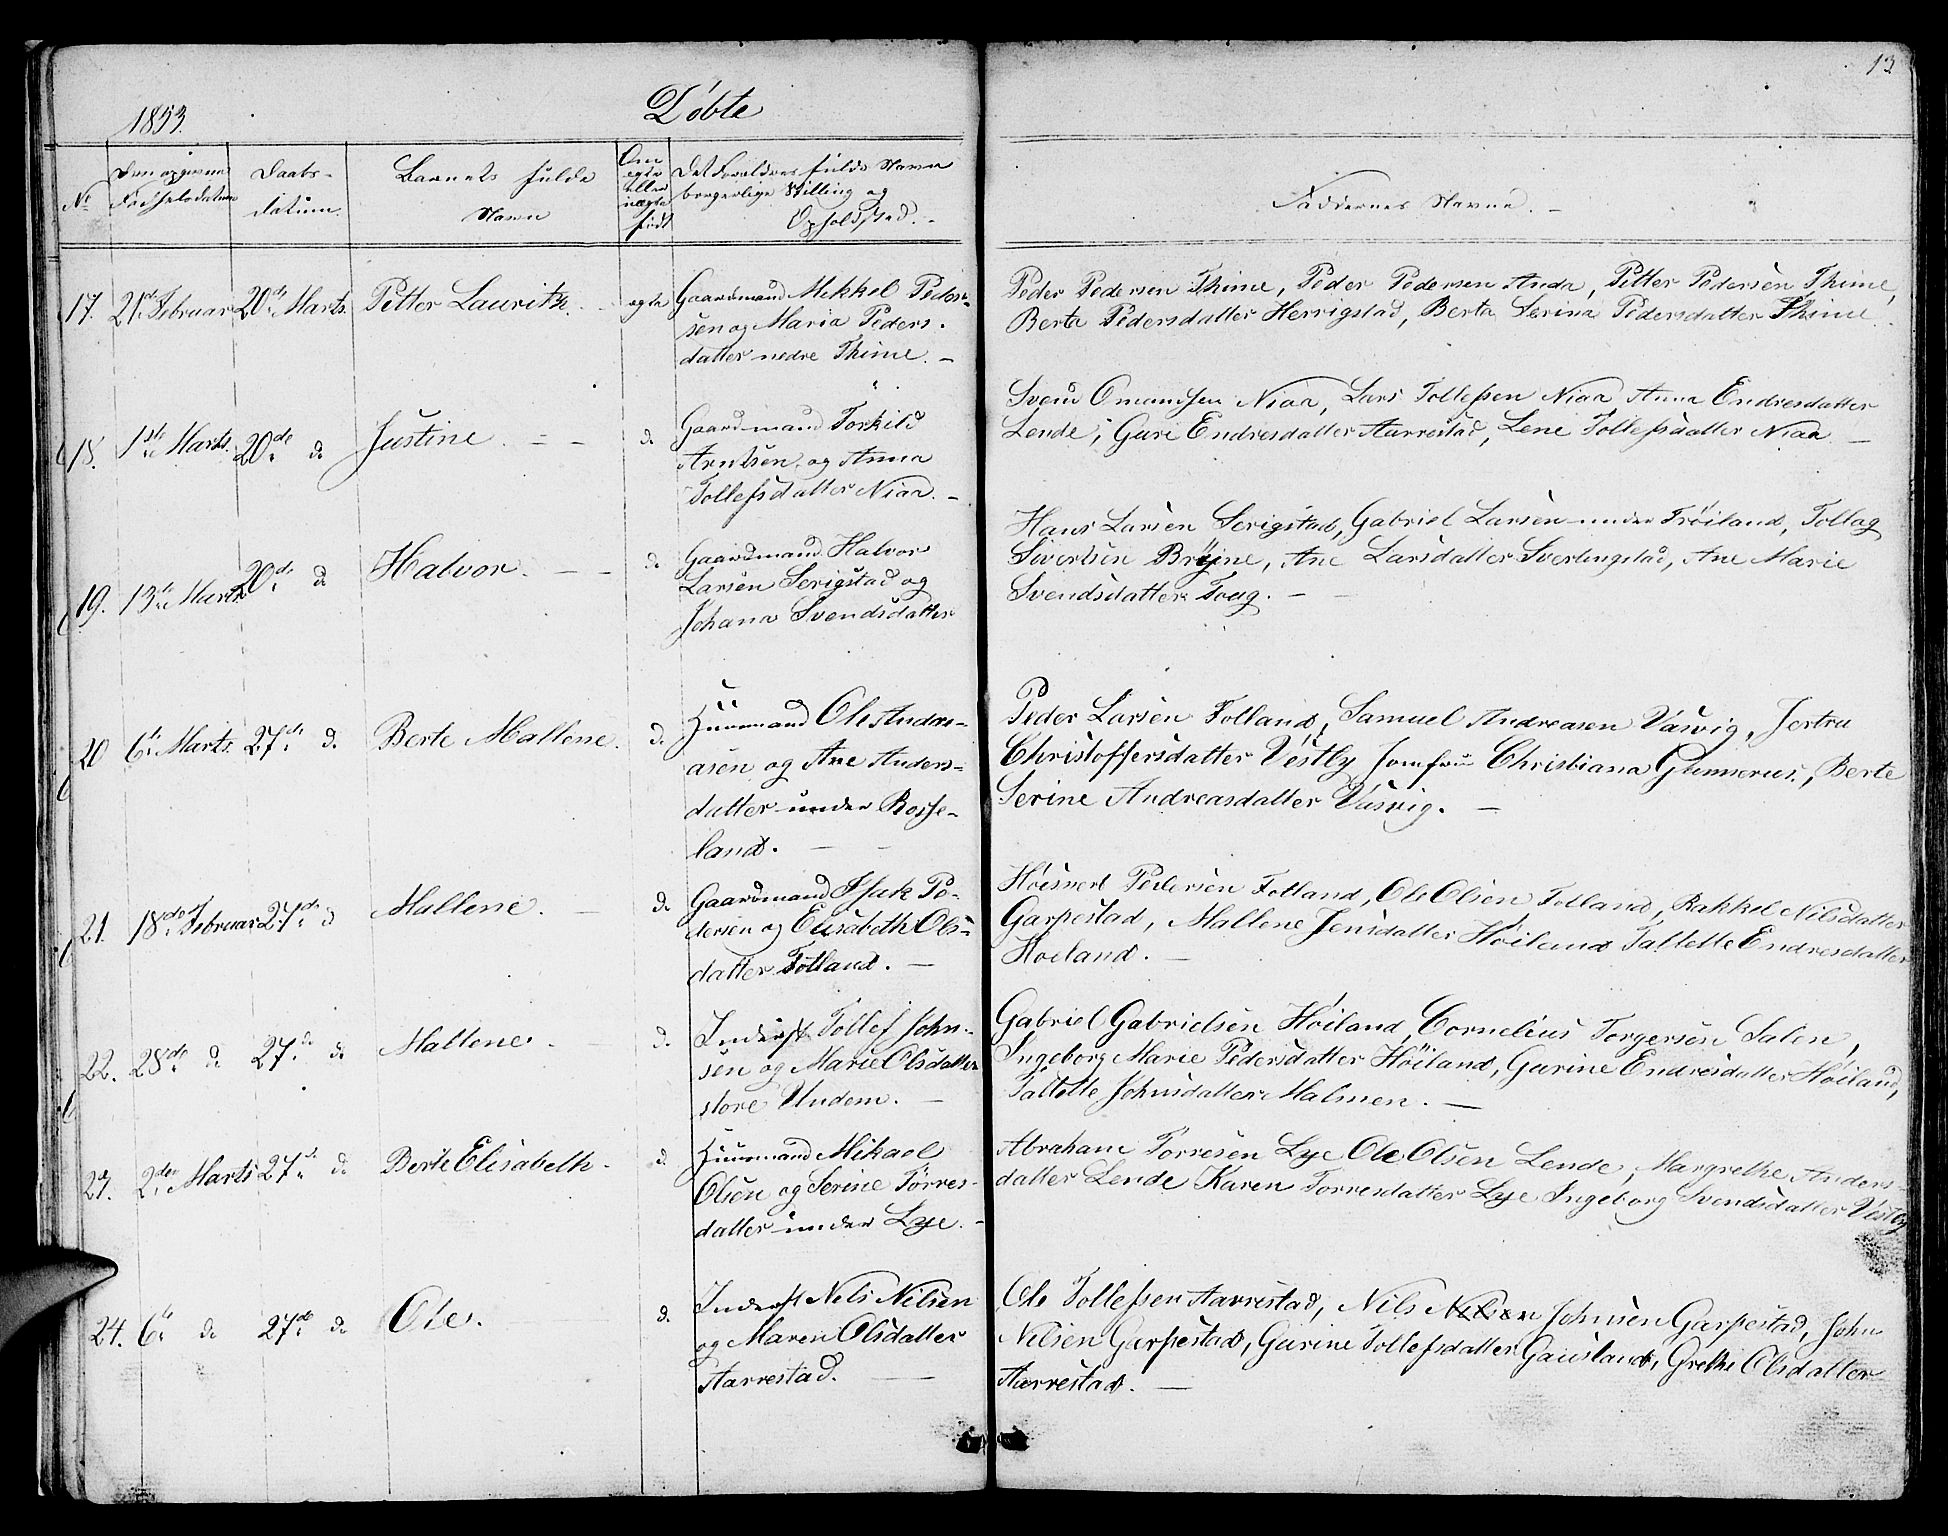 13
1853. Døbte
No
Den opgivne Fødselsdatum
Daabs-datum.
Barnets fulde Navn
Om ægte eller uægte født
Det Forældres fulde Navn borgerlige Stilling og Opholdsted. -
Faddernes Navne. -
17. 21de Februar 20de Marts. Petter Lauritz. - ægte Gaardmand Mikkel Peder-
sen og Maria Peders-
datter nedre Thime. -
Peder Pedersen Thime, Peder Pedersen Anda, Petter Pedersen Thime,
Berta Pedersdatter Herrigstad, Berta Serina Pedersdatter Thime.
18. 1ste Marts. 20de do Justine. - - do Gaardmand Torkild
Arntsen og Anna
Tollefsdatter Niaa. -
Svend Omundsen Niaa, Lars Tollefsen Niaa Anna Endresdatter
Lende, Guri Endresdatter Aarrestad, Lene Tollefsdatter Niaa. -
19. 13de Marts 20de do Halvor. - - do Gaardmand Halvor
Larsen Serigstad og
Johana Svendsdatter
Hans Larsen Serigstad, Gabriel Larsen under Frøiland, Tollag
Sivertsen Bryne, Ane Larsdatter Sverlingstad, Ane Marie
Svendsdatter Toug. - -
20 6te Marts. 27de do Berte Mallene. do Huusmand Ole Andre-
asen og Ane Anders-
datter under Rosse-
land. - -
Peder Larsen Folland, Samuel Andreasen Vasvig, Jertru
Christoffersdatter Vestly Jomfru Christiana Gunnerus, Berte
Serine Andreasdatter Vasvig. -
21. 18de Februar 27de do Mallene. - do Gaardmand Isak Pe-
dersen og Elisabeth Ols-
datter Folland. -
Høisverl Pedersen Folland, Ole Olsen Folland, Rakkel Nilsdatter
Garpestad, Mallene Jensdatter Høiland Taletle Endresdatter
Høiland. -
22. 28de do 27de do Mallene. - do Inderst Tollef John-
sen og Marie Olsdatter
store Undem. -
Gabriel Gabrielsen Høiland, Cornelius Torgersen Salen,
Ingeborg Marie Pedersdatter Høiland, Gurine Endresdatter Høiland,
Taletle Johnsdatter Malmen. -
23. 2den Marts 27de do Berte Elisabeth. do Huusmand Mikael
Olsen og Serine Tørres-
datter under Lye. -
Abraham Torresen Lye Ole Olsen Lende, Margrethe Anders-
datter Lende Karen Torresdatter Lye Ingeborg Svendsdatter Vestly
24. 6te do 27de do Ole. do Inderst Nels Nilsen
og Maren Olsdatter
Aarrestad. - -
Ole Tollefsen Aarrestad, Nils Nelsen Johnsen Garpestad, John
Nelsen Garpestad, Gurine Tollefsdatter Gausland, Grethe Olsdatter
Aarrestad. -